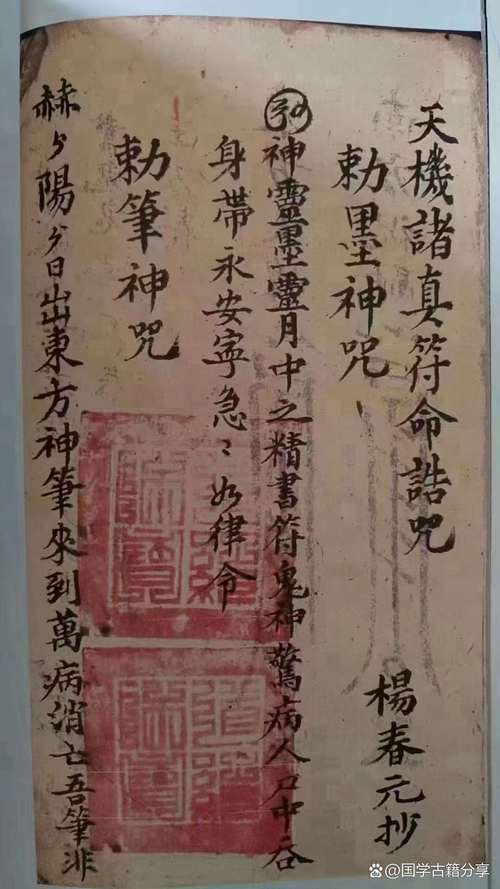 天機諸真符命誥咒
勅墨神咒
楊春元抄
神靈墨靈月中之精書符鬼神驚病人口中吞
身帶永安寧急〻如律令
勅筆神咒
赫々陽々日出東方神筆來到萬病消亡吾筆非
道經師寶
道經師寶
@国学古籍分享